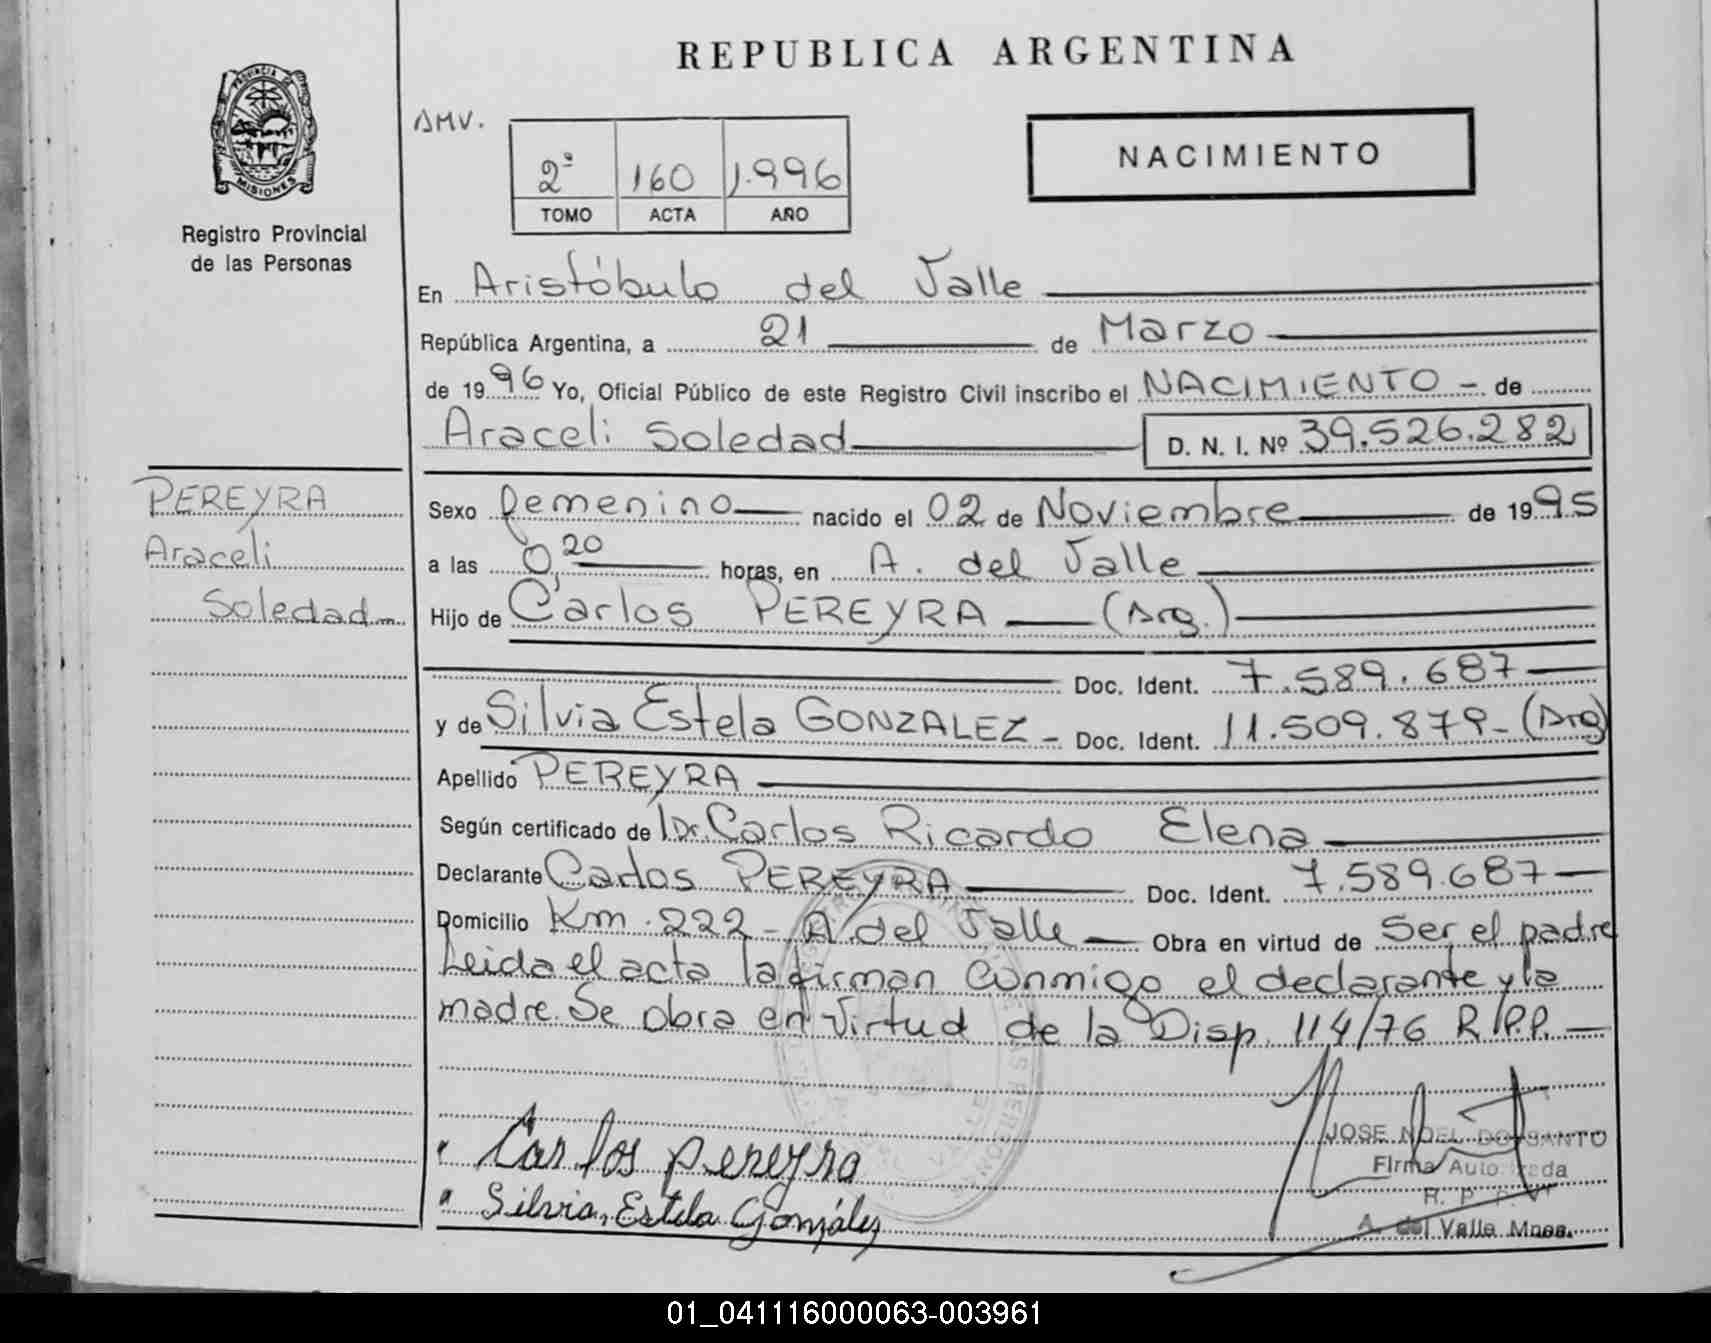 REPUBLICA ARGENTINA
PROVINCIA DE
MISIONES
Registro Provincial
de las Personas
AMV.
2º 160 1.996
TOMO ACTA AÑO
NACIMIENTO
En Aristóbulo del Valle
República Argentina, a 21 de Marzo
de 1996 Yo, Oficial Público de este Registro Civil inscribo el NACIMIENTO - de
Araceli Soledad D. N. I. Nº 39.526.282
PEREYRA
Araceli
Soledad
Sexo femenino nacido el 02 de Noviembre de 1995
a las 0,20 horas, en A. del Valle
Hijo de Carlos PEREYRA (Arg.)
Doc. Ident. 7.589.687
y de Silvia Estela GONZALEZ - Doc. Ident. 11.509.879 - (Arg)
Apellido PEREYRA
Según certificado de Dr. Carlos Ricardo Elena
Declarante Carlos PEREYRA Doc. Ident. 7.589.687
Domicilio Km. 222 - A. del Valle Obra en virtud de Ser el padre
Leida el acta la firman conmigo el declarante y la
madre. Se obra en virtud de la Disp. 114/76 R.P.P.
Carlos pereyra
Silvia Estela González
JOSE NOEL DO SANTO
Firma Autorizada
R. P. P.
A. del Valle Mnes.
01_041116000063-003961